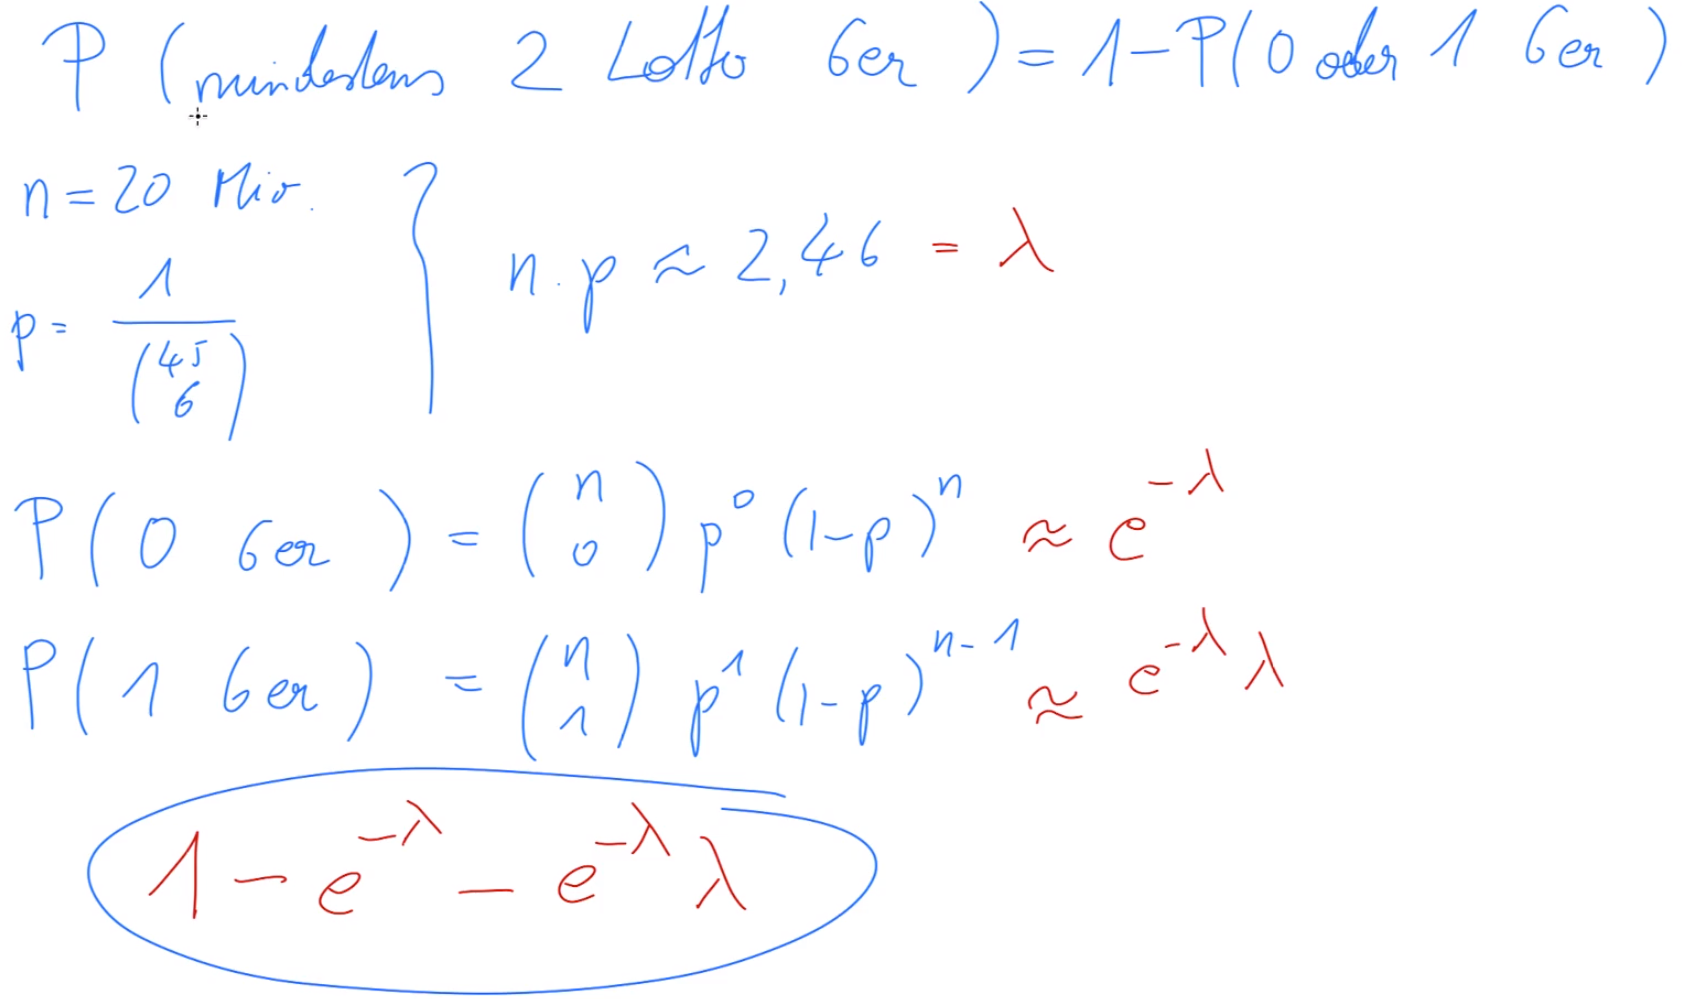 P (mindestens 2 Lotto 6er) = 1 - P(0 oder 1 6er)
n = 20 Mio.
n · p ≈ 2,46 = λ
p = 1 / (45 6)
P(0 6er) = (n 0) p⁰ (1-p)ⁿ ≈ e^-λ
P(1 6er) = (n 1) p¹ (1-p)ⁿ⁻¹ ≈ e^-λ λ
1 - e^-λ - e^-λ λ